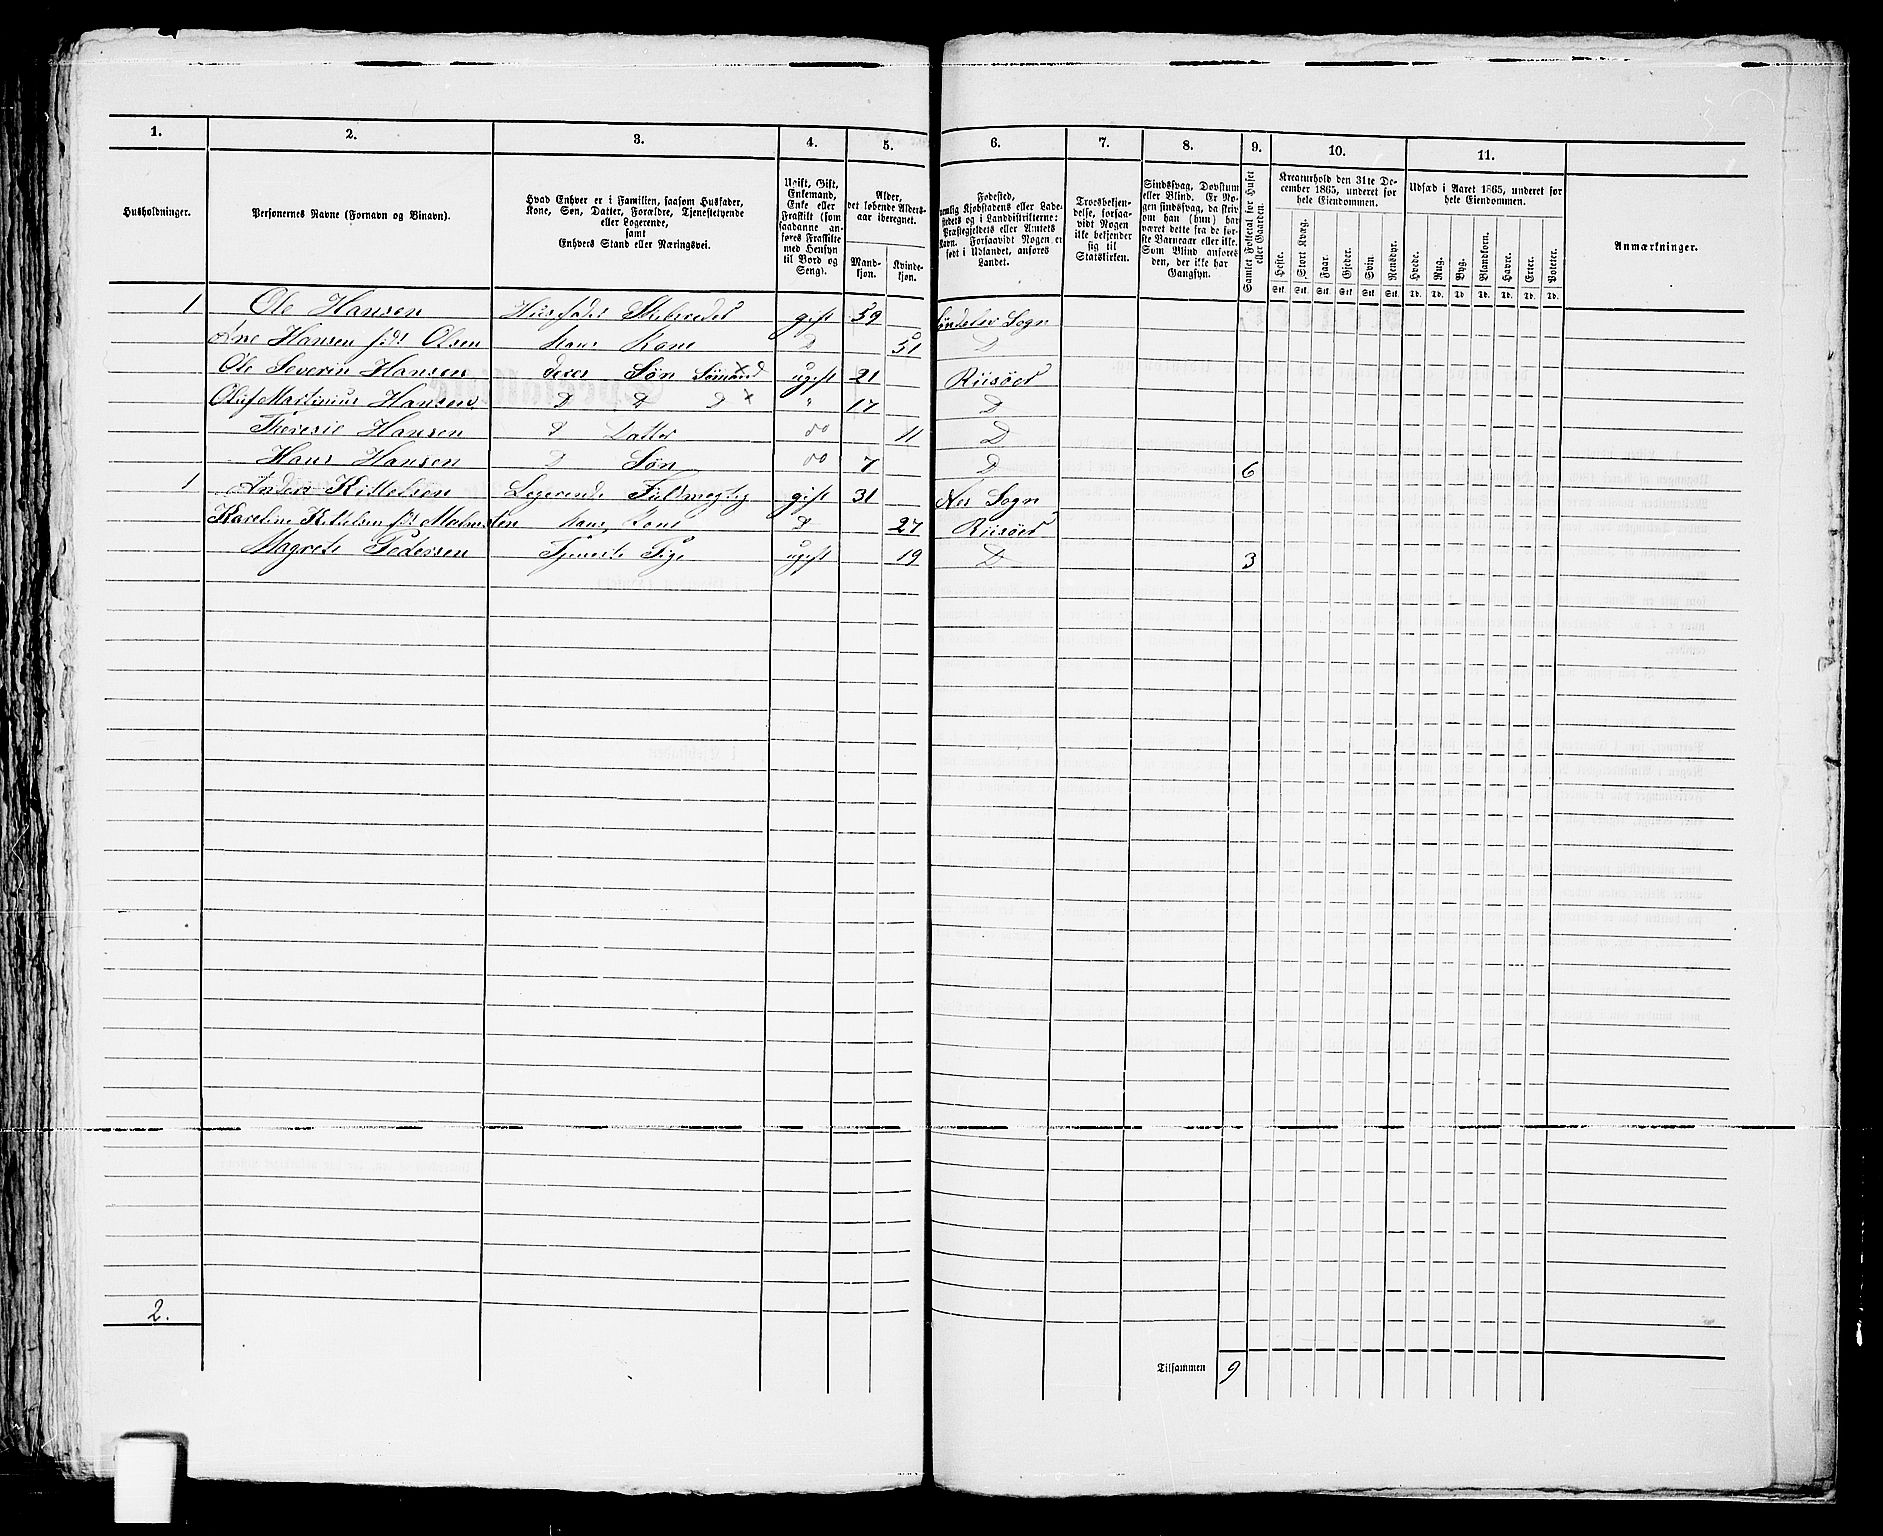 1. 2. 3. 4. 5. 6. 7. 8. 9. 10. 11.
Husholdninger.
Personernes Navne (Fornavn og Vinavn).
Hvad Enhver er i Familien, saasom Husfader,
Kone, Søn, Datter, Forældre, Tjenestetyende
eller Logerende,
samt
Enhvers Stand eller Næringsvei.
Ugift, Gift,
Enkemand,
Enke eller
Fraskilt (som
saadanne an-
føres Fraskilte
med Hensyn
til Bord og
Seng).
Alder,
det løbende Alders-
aar iberegnet.
Mand-
kjøn.
Kvinde-
kjøn.
Fødested,
nemlig Kjøbstadens eller Lade-
stedets og i Landdistrikterne:
Præstegjeldets eller Amtets
Navn. Forsaavidt Nogen er
født i Udlandet, anføres
Landet.
Troesbekjen-
delse, forsaa-
vidt Nogen
ikke bekjender
sig til
Statskirken.
Sindssvag, Døvstum
eller Blind. Er No-
gen sindssvag, da skriv
om han (hun) har
været dette fra de før-
ste Barneaar eller ikke.
Som Blind anføres
den, der ikke har
Gangsyn.
Samlet Folketal for Huset
eller Gaarden.
Kreaturhold den 31te De-
cember 1865, underet for
hele Eiendommen.
Heste.
Stort Kvæg.
Faar.
Gjeder.
Svin.
Rensdyr.
Stk. Stk. Stk. Stk. Stk. Stk.
Udsæd i Aaret 1865, underet for
hele Eiendommen.
Hvede.
Rug.
Byg.
Blandkorn.
Havre.
Erter.
Poteter.
Td. Td. Td. Td. Td. Td. Td.
Anmærkninger.
1 Ole Hansen Huusfader gift 59 Søndelev Sogn
Ane Hansen født Olsen hans Kone D 51 D
Ole Severin Hansen deres Søn Sømand ugift 21 Riisøer
Oluf Martinius Hansen D D D 17 D
Theresie Hansen D Datter do 11 D
Hans Hansen D Søn do 7 D 6
1 Anders Kittelsen Logerende Fuldmegtig gift 31 Nes Sogn
Kareline Kittelsen født Malmsten hans Kone D 27 Riisøer
Magrete Pedersen Tjeneste Pige ugift 19 D 3
2.
Tilsammen 9